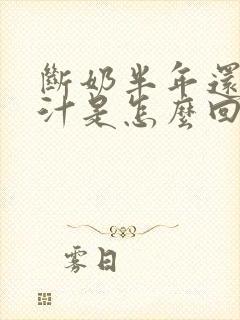 斷奶半年還
汁是怎麼回
雾日